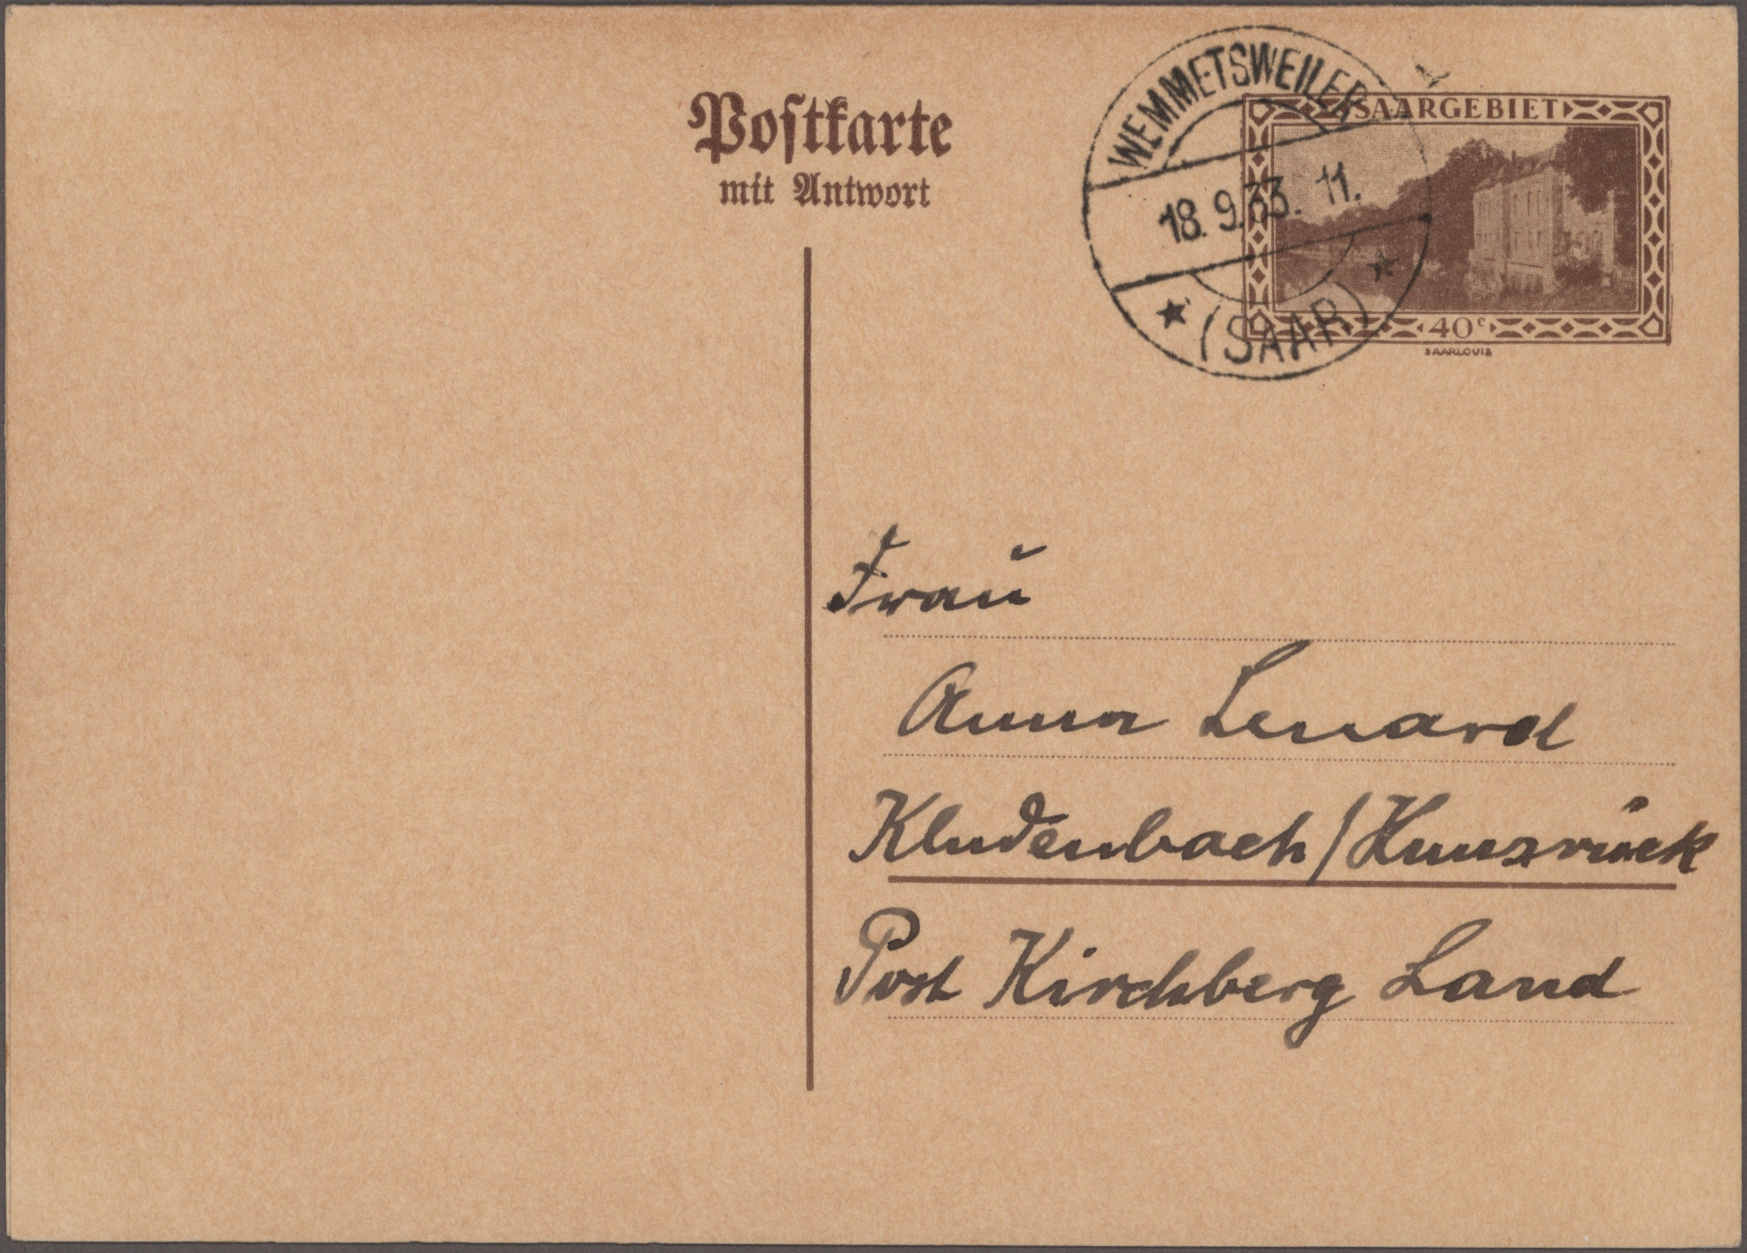 Postkarte
mit Antwort
WEMMETSWEILER
18.9.33. 11.
(SAAR)
SAARGEBIET
40c
SAARLOUIS
Frau
Anna Lenard
Kludenbach/Hunsrück
Post Kirchberg Land